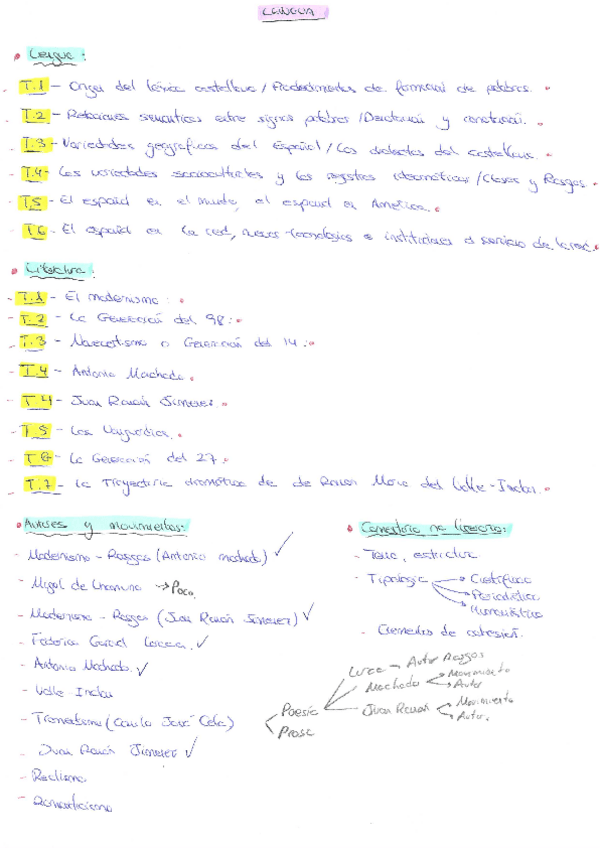 LENGUA
Lengua:
T.1 - Origen del léxico castellano / Procedimientos de formación de palabras.
T.2 - Relaciones semánticas entre signos palabras / Denotación y connotación.
T.3 - Variedades geográficas del Español / Los dialectos del castellano.
T.4 - Las variedades socioculturales y los registros idiomáticos / Clases y Rasgos.
T.5 - El español en el mundo, el español en América.
T.6 - El español en la red, nuevas tecnologías e instituciones al servicio de la
Literatura:
T.1 - El modernismo:
T.2 - La Generación del 98:
T.3 - Novecentismo o Generación del 14:
T.4 - Antonio Machado.
T.4 - Juan Ramón Jiménez.
T.5 - Las Vanguardias.
T.6 - La Generación del 27.
T.7 - La Trayectoria dramática de de Ramón María del Valle-Inclán.
Autores y movimientos:
- Modernismo - Rasgos (Antonio machado) ✓
- Miguel de Unamuno → Poco
- Modernismo - Rasgos (Juan Ramón Jiménez) ✓
- Federico García Lorca. ✓
- Antonio Machado. ✓
- Valle Inclán
- Tremendismo (Camilo José Cela)
- Juan Ramón Jiménez ✓
- Realismo
- Romanticismo
Comentario no literario:
- Tema, estructura
- Tipología → Científico
→ Periodístico
→ Humanístico
- Elementos de cohesión.
Poesía
Lorca - Autor Rasgos
Machado
Movimiento
Autor
Juan Ramón
Movimiento
Autor.
Prosa